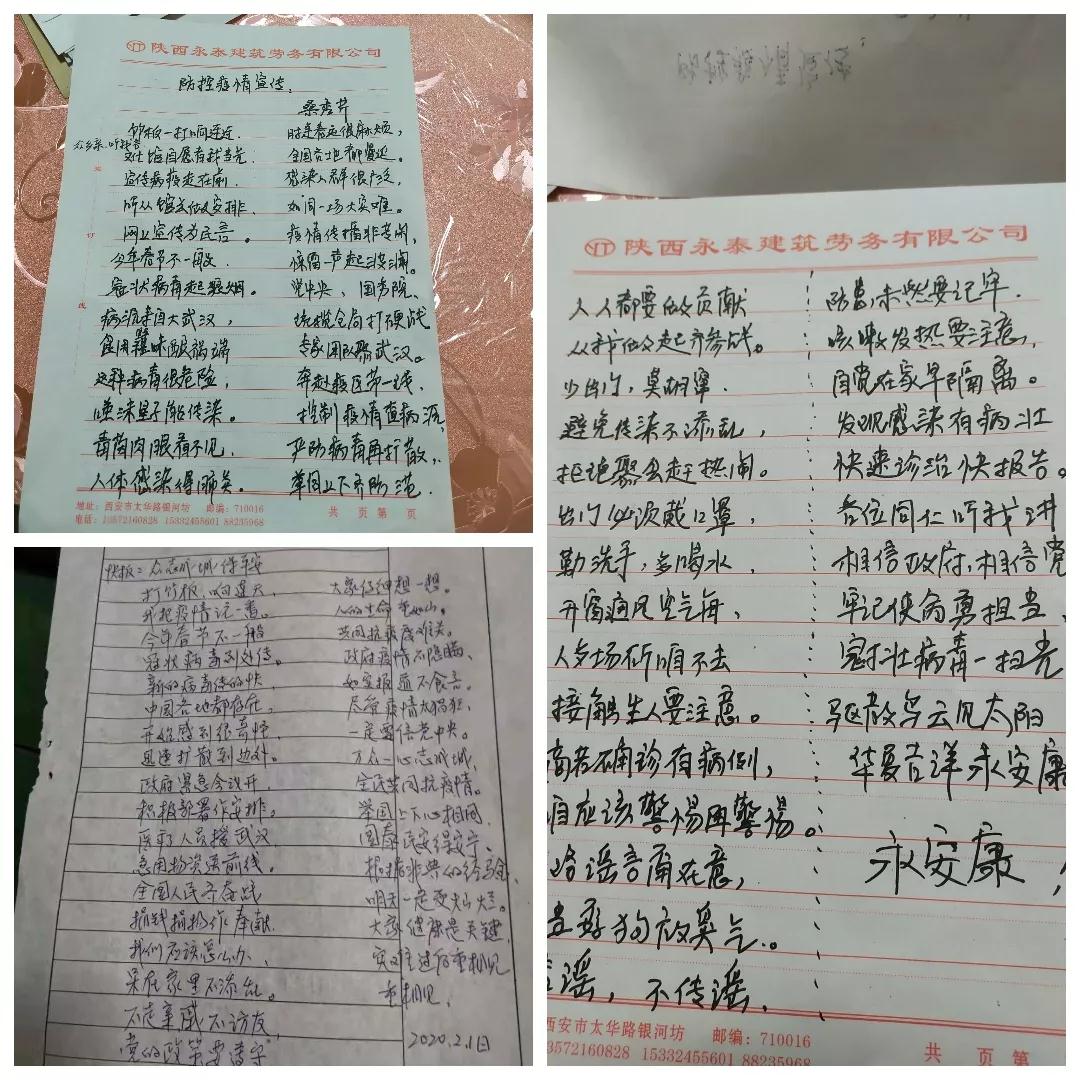 陕西永泰建筑劳务有限公司
防控疫情宣传
桑秀芹
竹板一打响连连
众乡亲、听我言
文化馆自愿者我当先
宣传病疫走在前
听从馆长做安排
网上宣传为民言。
今年春节不一般
冠状病毒起狼烟。
病源来自大武汉，
食用野味酿祸端
这种病毒很危险，
唾沫星子能传染。
毒菌肉眼看不见，
人体感染得肺炎。
时逢春运很麻烦，
全国各地都蔓延。
感染人群很广泛，
如同一场大灾难。
疫情传播非等闲，
惊雷一声起波澜。
党中央、国务院、
统揽全局打硬战
专家团队聚武汉。
奔赴疫区第一线，
控制疫情查病源，
严防病毒再扩散，
举国上下齐防范
地址：西安市太华路银河坊 邮编：710016
电话：13572160828 15332455601 88235968
共 页 第 页
陕西永泰建筑劳务有限公司
人人都要做贡献
从我做起齐参战。
少出门，莫胡窜
避免传染不添乱，
拒绝聚会赶热闹。
出门必须戴口罩，
勤洗手，多喝水
开窗通风空气每，
人多场所咱不去
接触生人要注意。
若确诊有病例，
咱应该警惕再警惕。
谣言甭在意，
放臭气。
谣，不传谣，
防患未然要记牢
咳嗽发热要注意，
自觉在家早隔离。
发现感染有病壮
快速诊治快报告。
各位同仁听我讲
相信政府，相信党
牢记使命勇担当、
冠状壮病毒一扫光
驱散乌云见太阳
华夏吉祥永安康
永安康！
西安市太华路银河坊 邮编：710016
3572160828 15332455601 88235968
共 页 第
快板：众志成城保平安
打竹板，响连天，
我把疫情说一番。
今年春节不一般
冠状病毒到处传。
新的病毒传的快，
中国各地都存在，
开始感到很奇怪，
迅速扩散到边外。
政府紧急会议开，
积极部署作安排。
医疗人员援武汉
急用物资送前线。
全国人民齐奋战
捐钱捐物作奉献
我们应该怎么办、
呆在家里不添乱。
不走亲戚不访友，
党的政策要遵守
大家仔细想一想。
人的生命重如山。
共同抗疫度难关。
政府疫情不隐瞒，
如实报道不食言。
尽管疫情太猖狂，
一定要信党中央。
万众一心志成城，
全民共同抗疫情。
举国上下心相同，
国泰民安得安宁、
根据非典的经验，
明天一定更灿烂。
大家健康是关键，
灾难过后重相见
重相见，
2020.2.1日